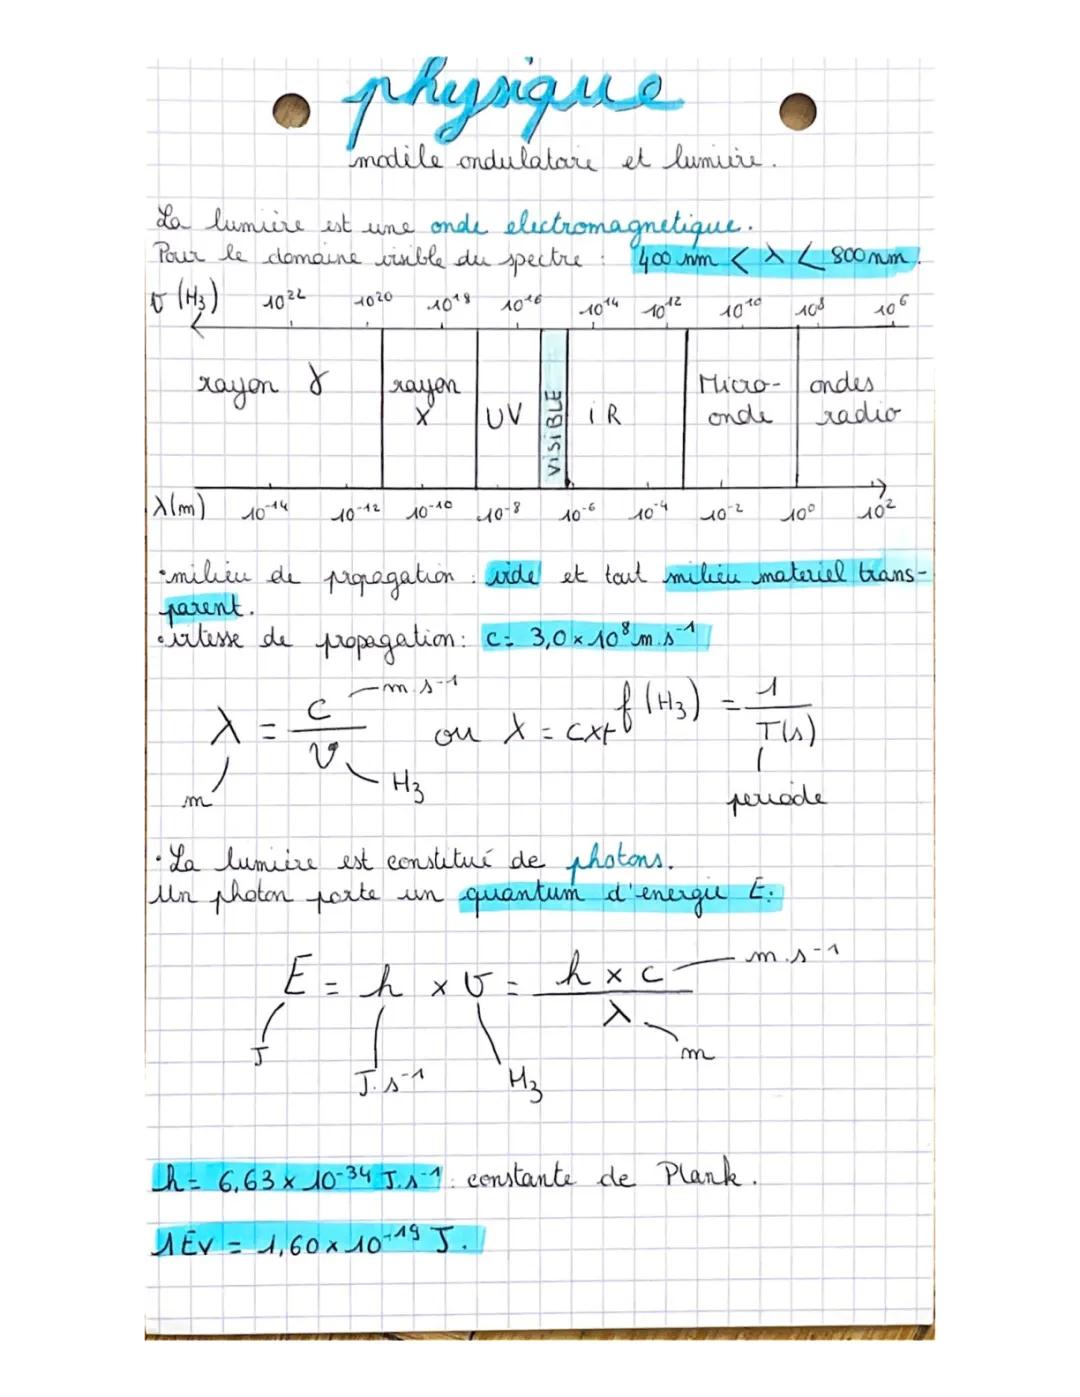 physique
modèle ondulatoire et lumière.
La lumière est une onde electromagnetique.
Pour le domaine visible du spectre : 400 nm < λ < 800 nm.
υ (Hz) 10²² 10²⁰ 10¹⁸ 10¹⁶ 10¹⁴ 10¹² 10¹⁰ 10⁸ 10⁶
rayon γ rayon X UV VISIBLE iR Micro-onde ondes radio
λ(m) 10⁻¹⁴ 10⁻¹² 10⁻¹⁰ 10⁻⁸ 10⁻⁶ 10⁻⁴ 10⁻² 10⁰ 10²
• milieu de propagation : vide et tout milieu materiel trans-
parent.
• vitesse de propagation : c = 3,0 × 10⁸ m.s⁻¹
λ = c / υ ou λ = c×t f (Hz) = 1 / T(s)
m m.s⁻¹ Hz periode
• La lumière est constitué de photons.
Un photon porte un quantum d'energie E :
E = h × υ = h × c / λ
m.s⁻¹
J J.s⁻¹ Hz m
h = 6,63 × 10⁻³⁴ J.s⁻¹ : constante de Plank.
1 Ev = 1,60 × 10⁻¹⁹ J.